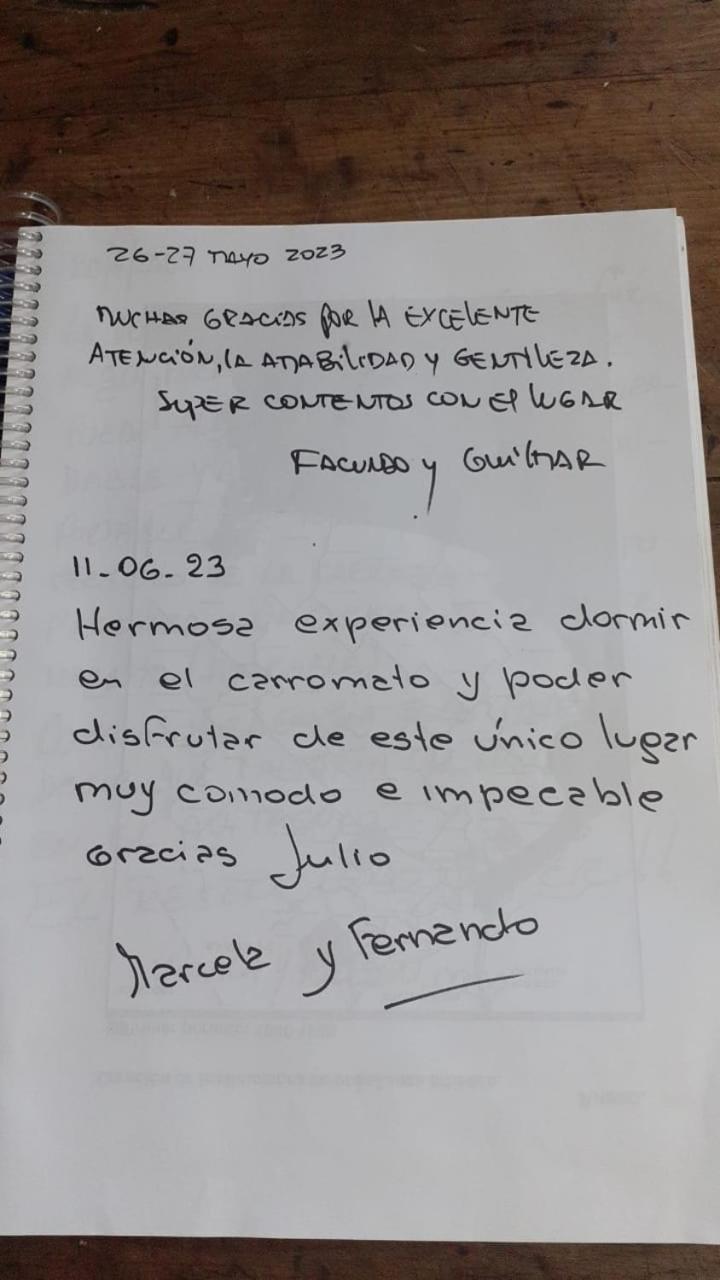 26-27 MAYO 2023
MUCHAS GRACIAS POR LA EXCELENTE
ATENCIÓN, LA AMABILIDAD Y GENTILEZA.
SUPER CONTENTOS CON EL LUGAR
FACUNDO y
11-06-23
Hermosa experiencia dormir
en el carromato y poder
disfrutar de este único lugar
muy comodo e impecable
Gracias Julio
Marcela y Fernando